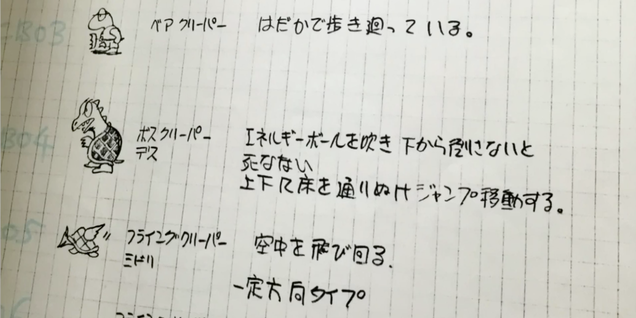 ベアクリーパー はだかで歩き廻っている。
ボスクリーパー エネルギーボールを吹き下から倒さないと
デス 死なない
上下に床を通りぬけジャンプ移動する。
フライングクリーパー 空中を飛び回る、
ミドリ
一定方向タイプ